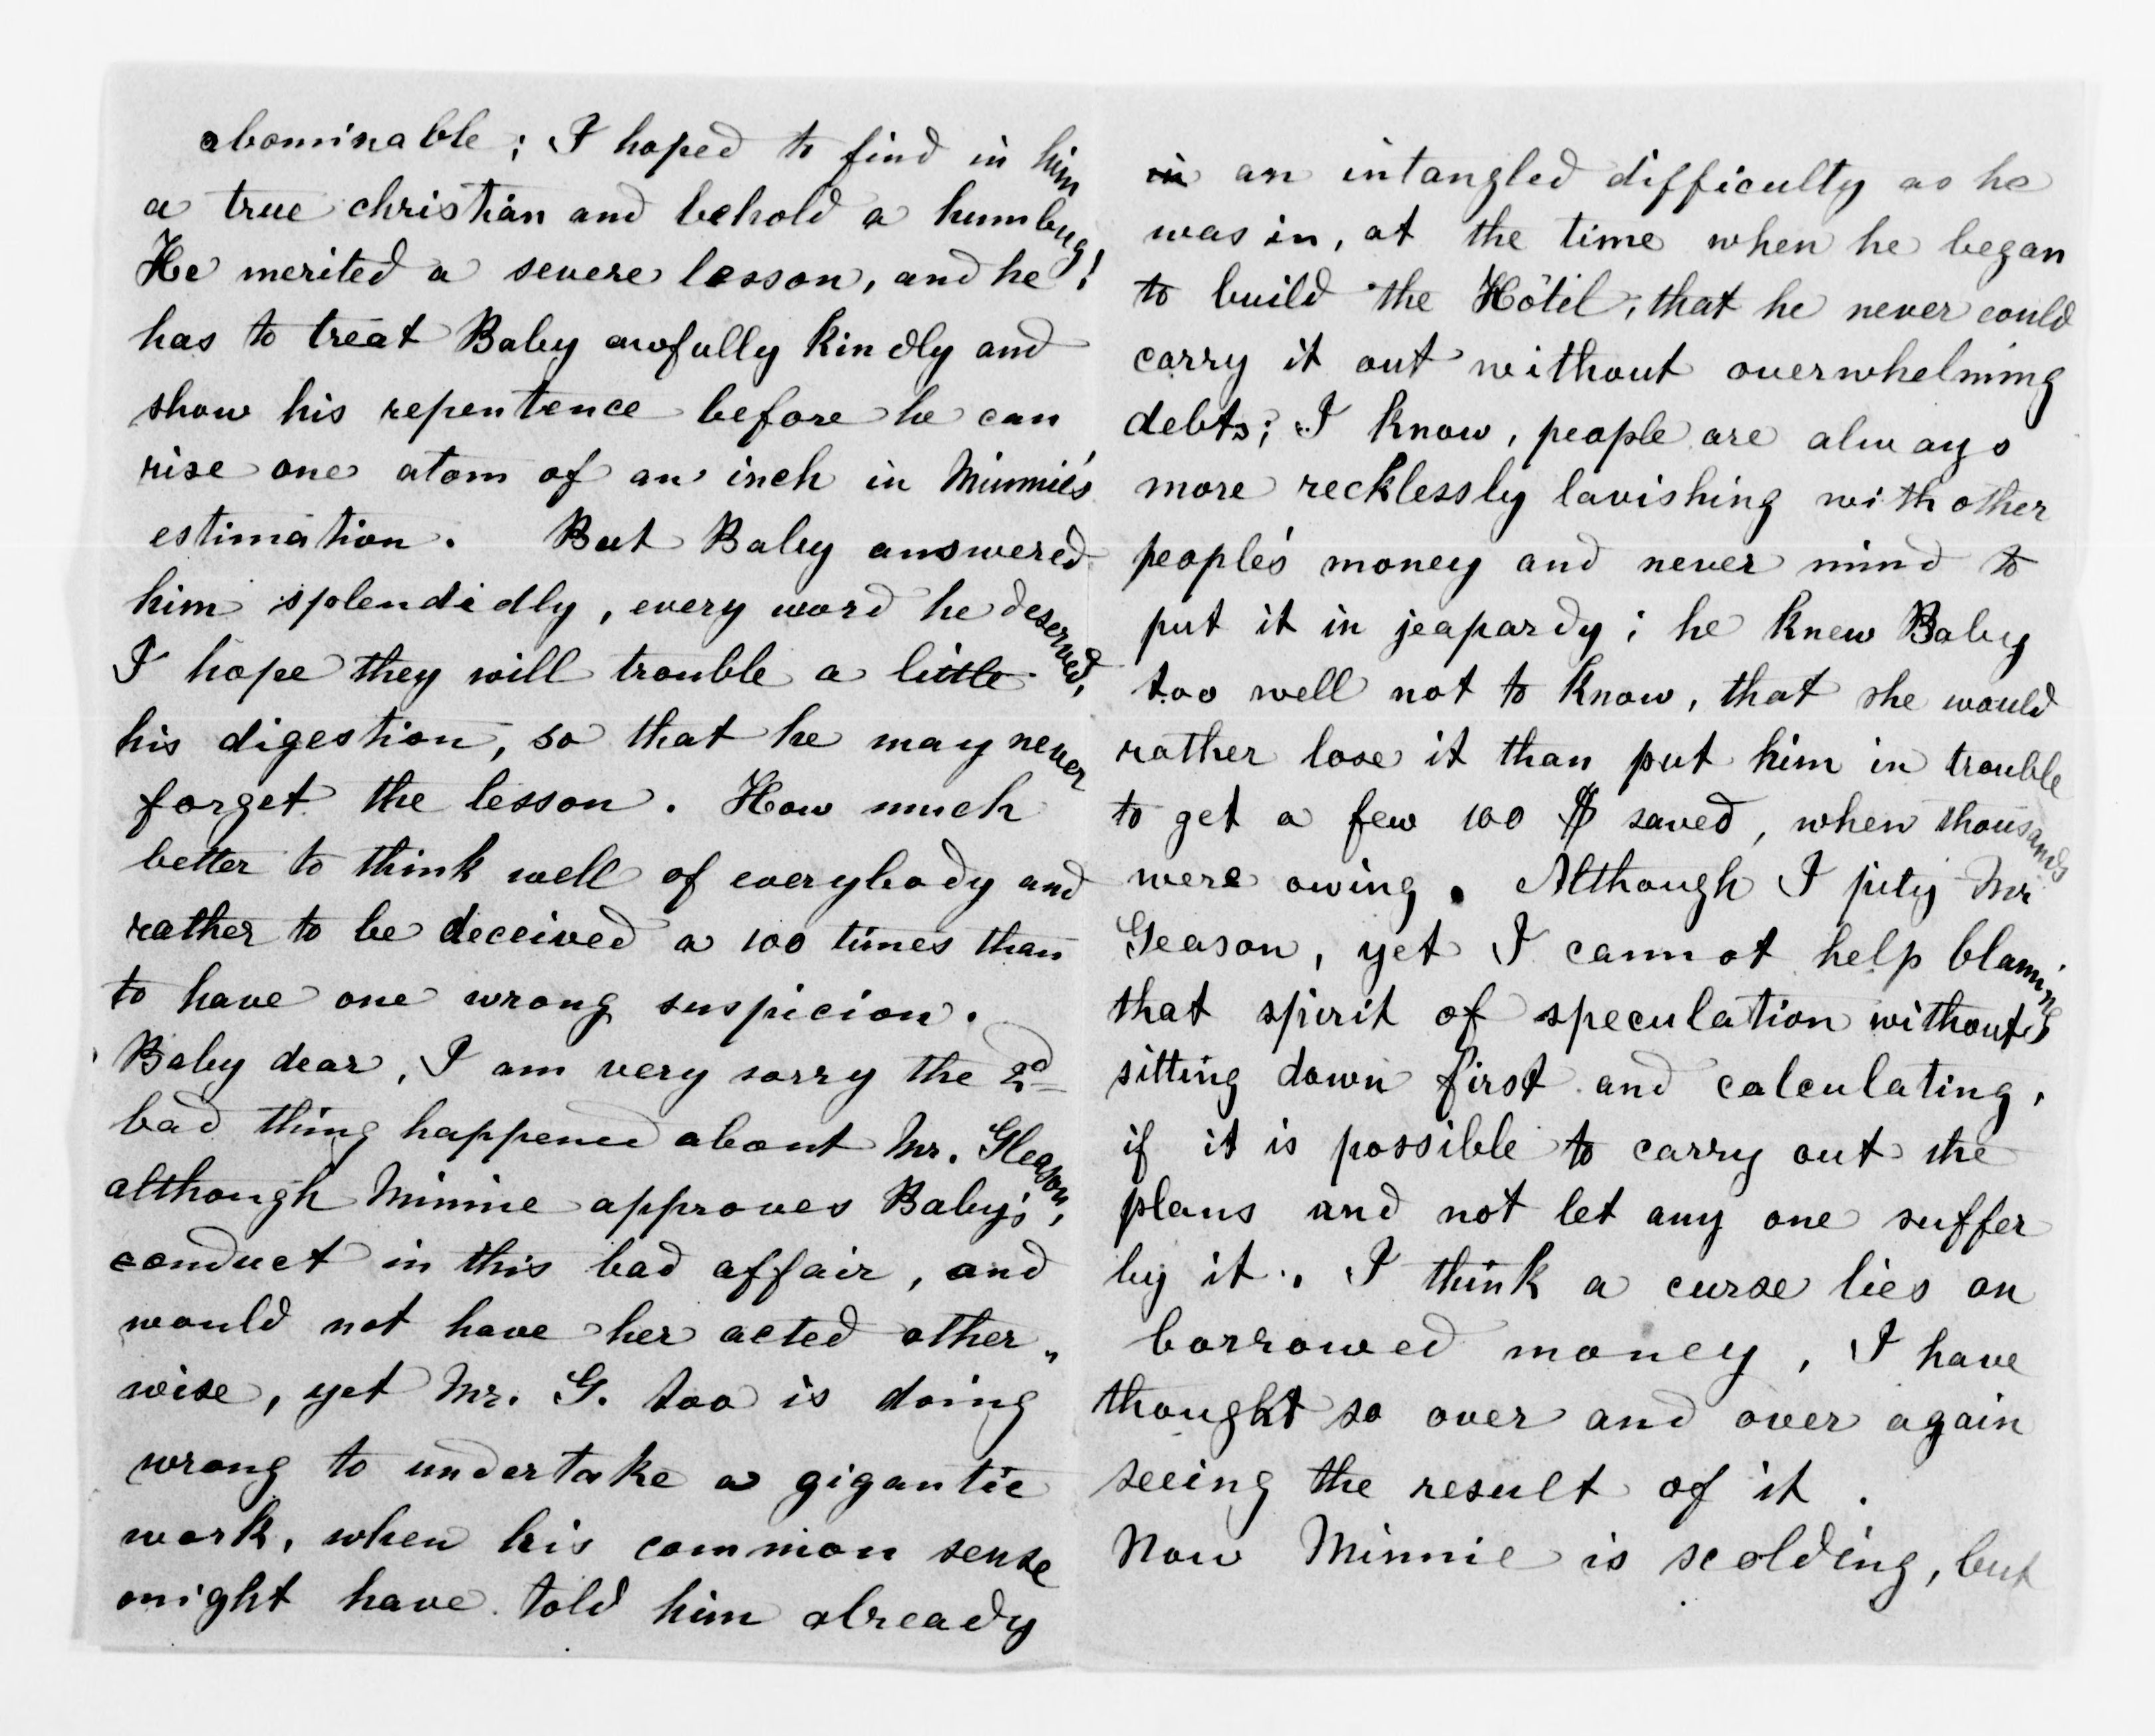 abominable; I hoped to find in him
a true christian and behold a humbug!
He merited a severe lesson, and he
has to treat Baby awfully kindly and
show his repentence before he can
rise one atom of an inch in Minnie's
estimation. But Baby answered
him splendidly, every word he deserved,
I hope they will trouble a little
his digestion, so that he may never
forget the lesson. How much
better to think well of everybody and
rather to be deceived a 100 times than
to have one wrong suspicion.
Baby dear, I am very sorry the 2d
bad thing happened about Mr. Gleason,
although Minnie approves Baby's
conduct in this bad affair, and
would not have her acted other„
wise, yet Mr. G. too is doing
wrong to undertake a gigantic
work, when his common sense
might have told him already
in an intangled difficulty as he
was in, at the time when he began
to build the Hôtel, that he never could
carry it out without overwhelming
debts; I know, people are always
more recklessly lavishing with other
people's money and never mind to
put it in jeapardy; he knew Baby
too well not to know, that she would
rather lose it than put him in trouble
to get a few 100 $ saved, when thousands
were owing. Although I pity Mr
Gleason, yet I cannot help blaming
that spirit of speculation without
sitting down first and calculating,
if it is possible to carry out the
plans and not let any one suffer
by it. I think a curse lies on
borrowed money, I have
thought so over and over again
seeing the result of it.
Now Minnie is scolding, but